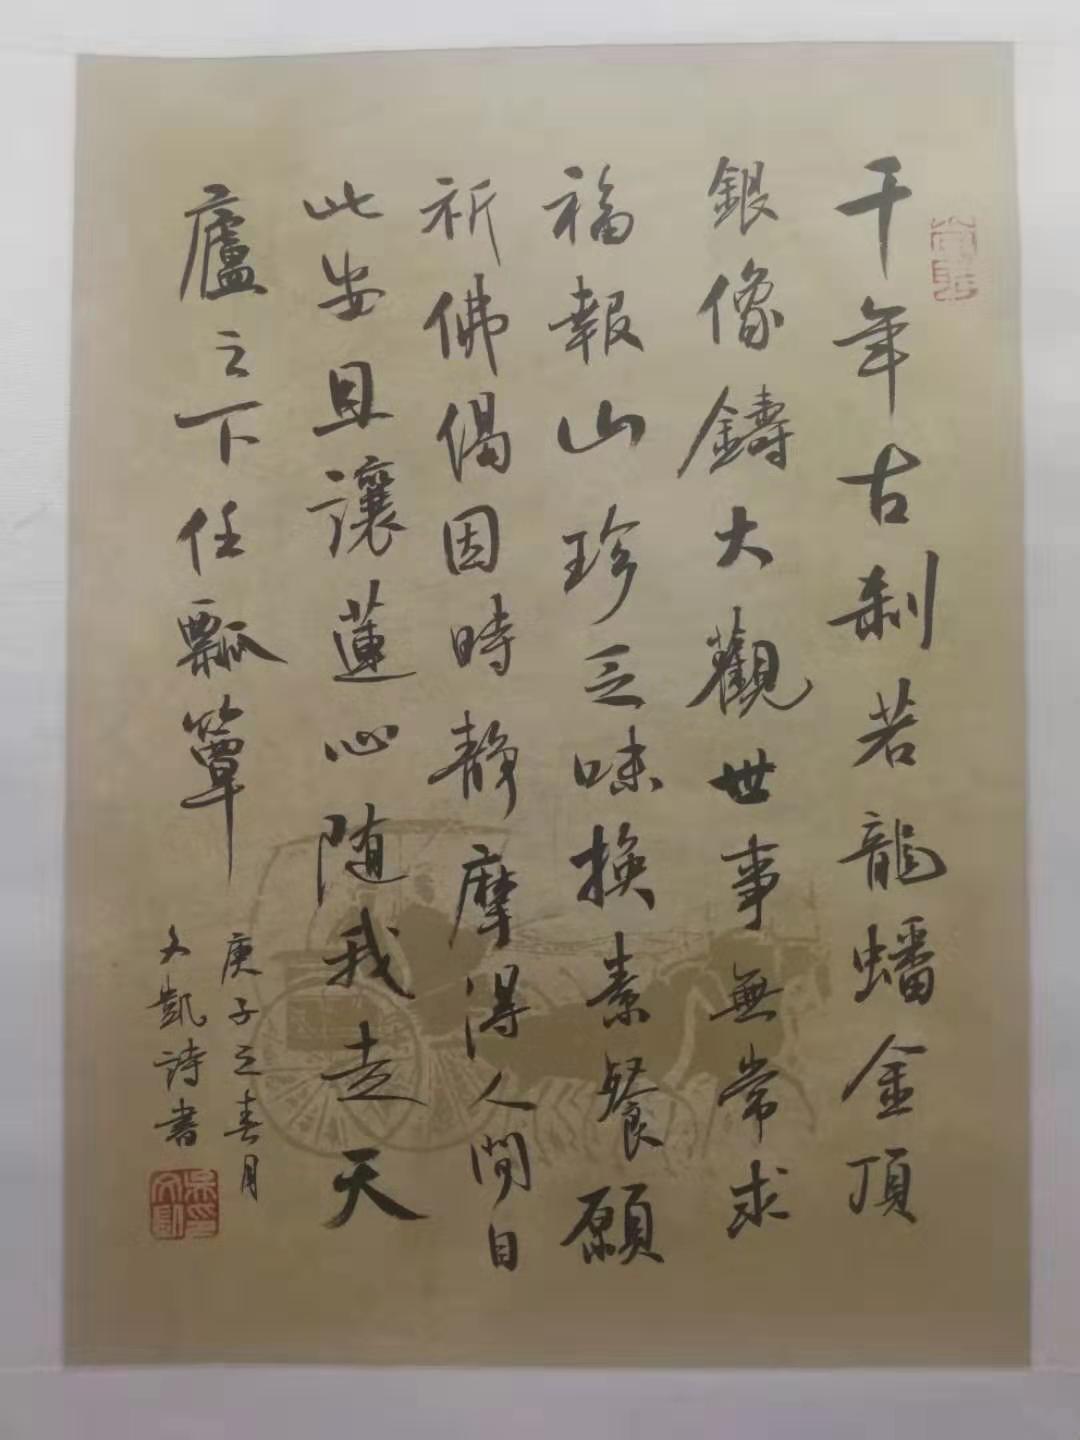 千年古刹若龍蟠金頂
銀像鑄大觀世事無常求
福報山珍之味換素餐願
祈佛偈因時靜摩得人間自
此安且讓蓮心随我走天
廬之下任瓢簞
庚子之春月
文凱詩書